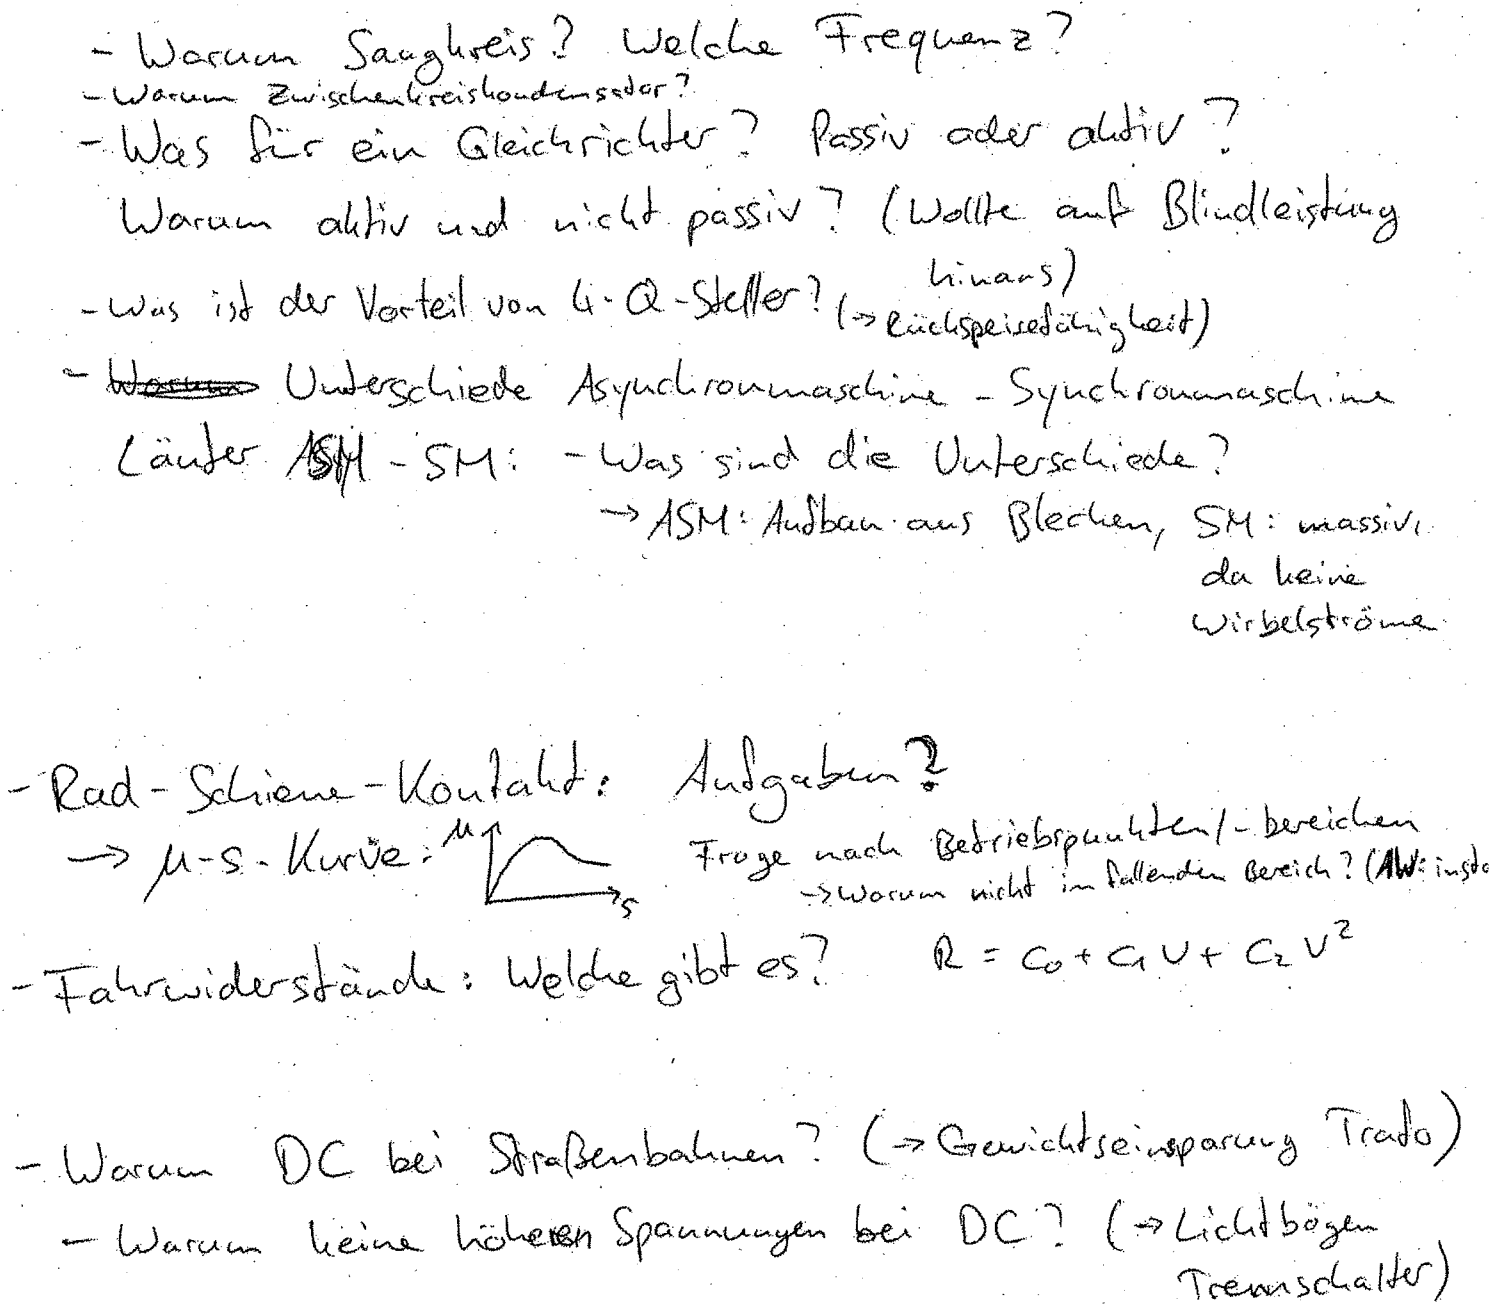 - Warum Saugkreis? Welche Frequenz?
- Warum Zwischenkreiskondensator?
- Was für ein Gleichrichter? Passiv oder aktiv?
Warum aktiv und nicht passiv? (Wollte auf Blindleistung
hinaus)
- Was ist der Vorteil von 4-Q-Steller? (→ Rückspeisefähigkeit)
- Unterschiede Asynchronmaschine - Synchronmaschine
Läufer ASM - SM: - Was sind die Unterschiede?
→ ASM: Aufbau aus Blechen, SM: massiv,
da keine
Wirbelströme
- Rad-Schiene-Kontakt: Aufgaben?
→ μ-s-Kurve: μ s Frage nach Betriebspunkten/-bereichen
→ Warum nicht im fallenden Bereich? (AW: insta
- Fahrwiderstände: Welche gibt es? R = C0 + C1 V + C2 V²
- Warum DC bei Straßenbahnen? (→ Gewichtseinsparung Trafo)
- Warum keine höheren Spannungen bei DC? (→ Lichtbögen
Trennschalter)